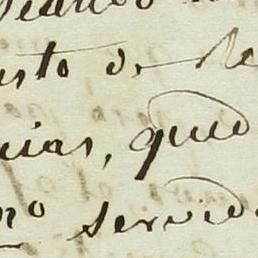 usto de Re
cias, qued
no servid